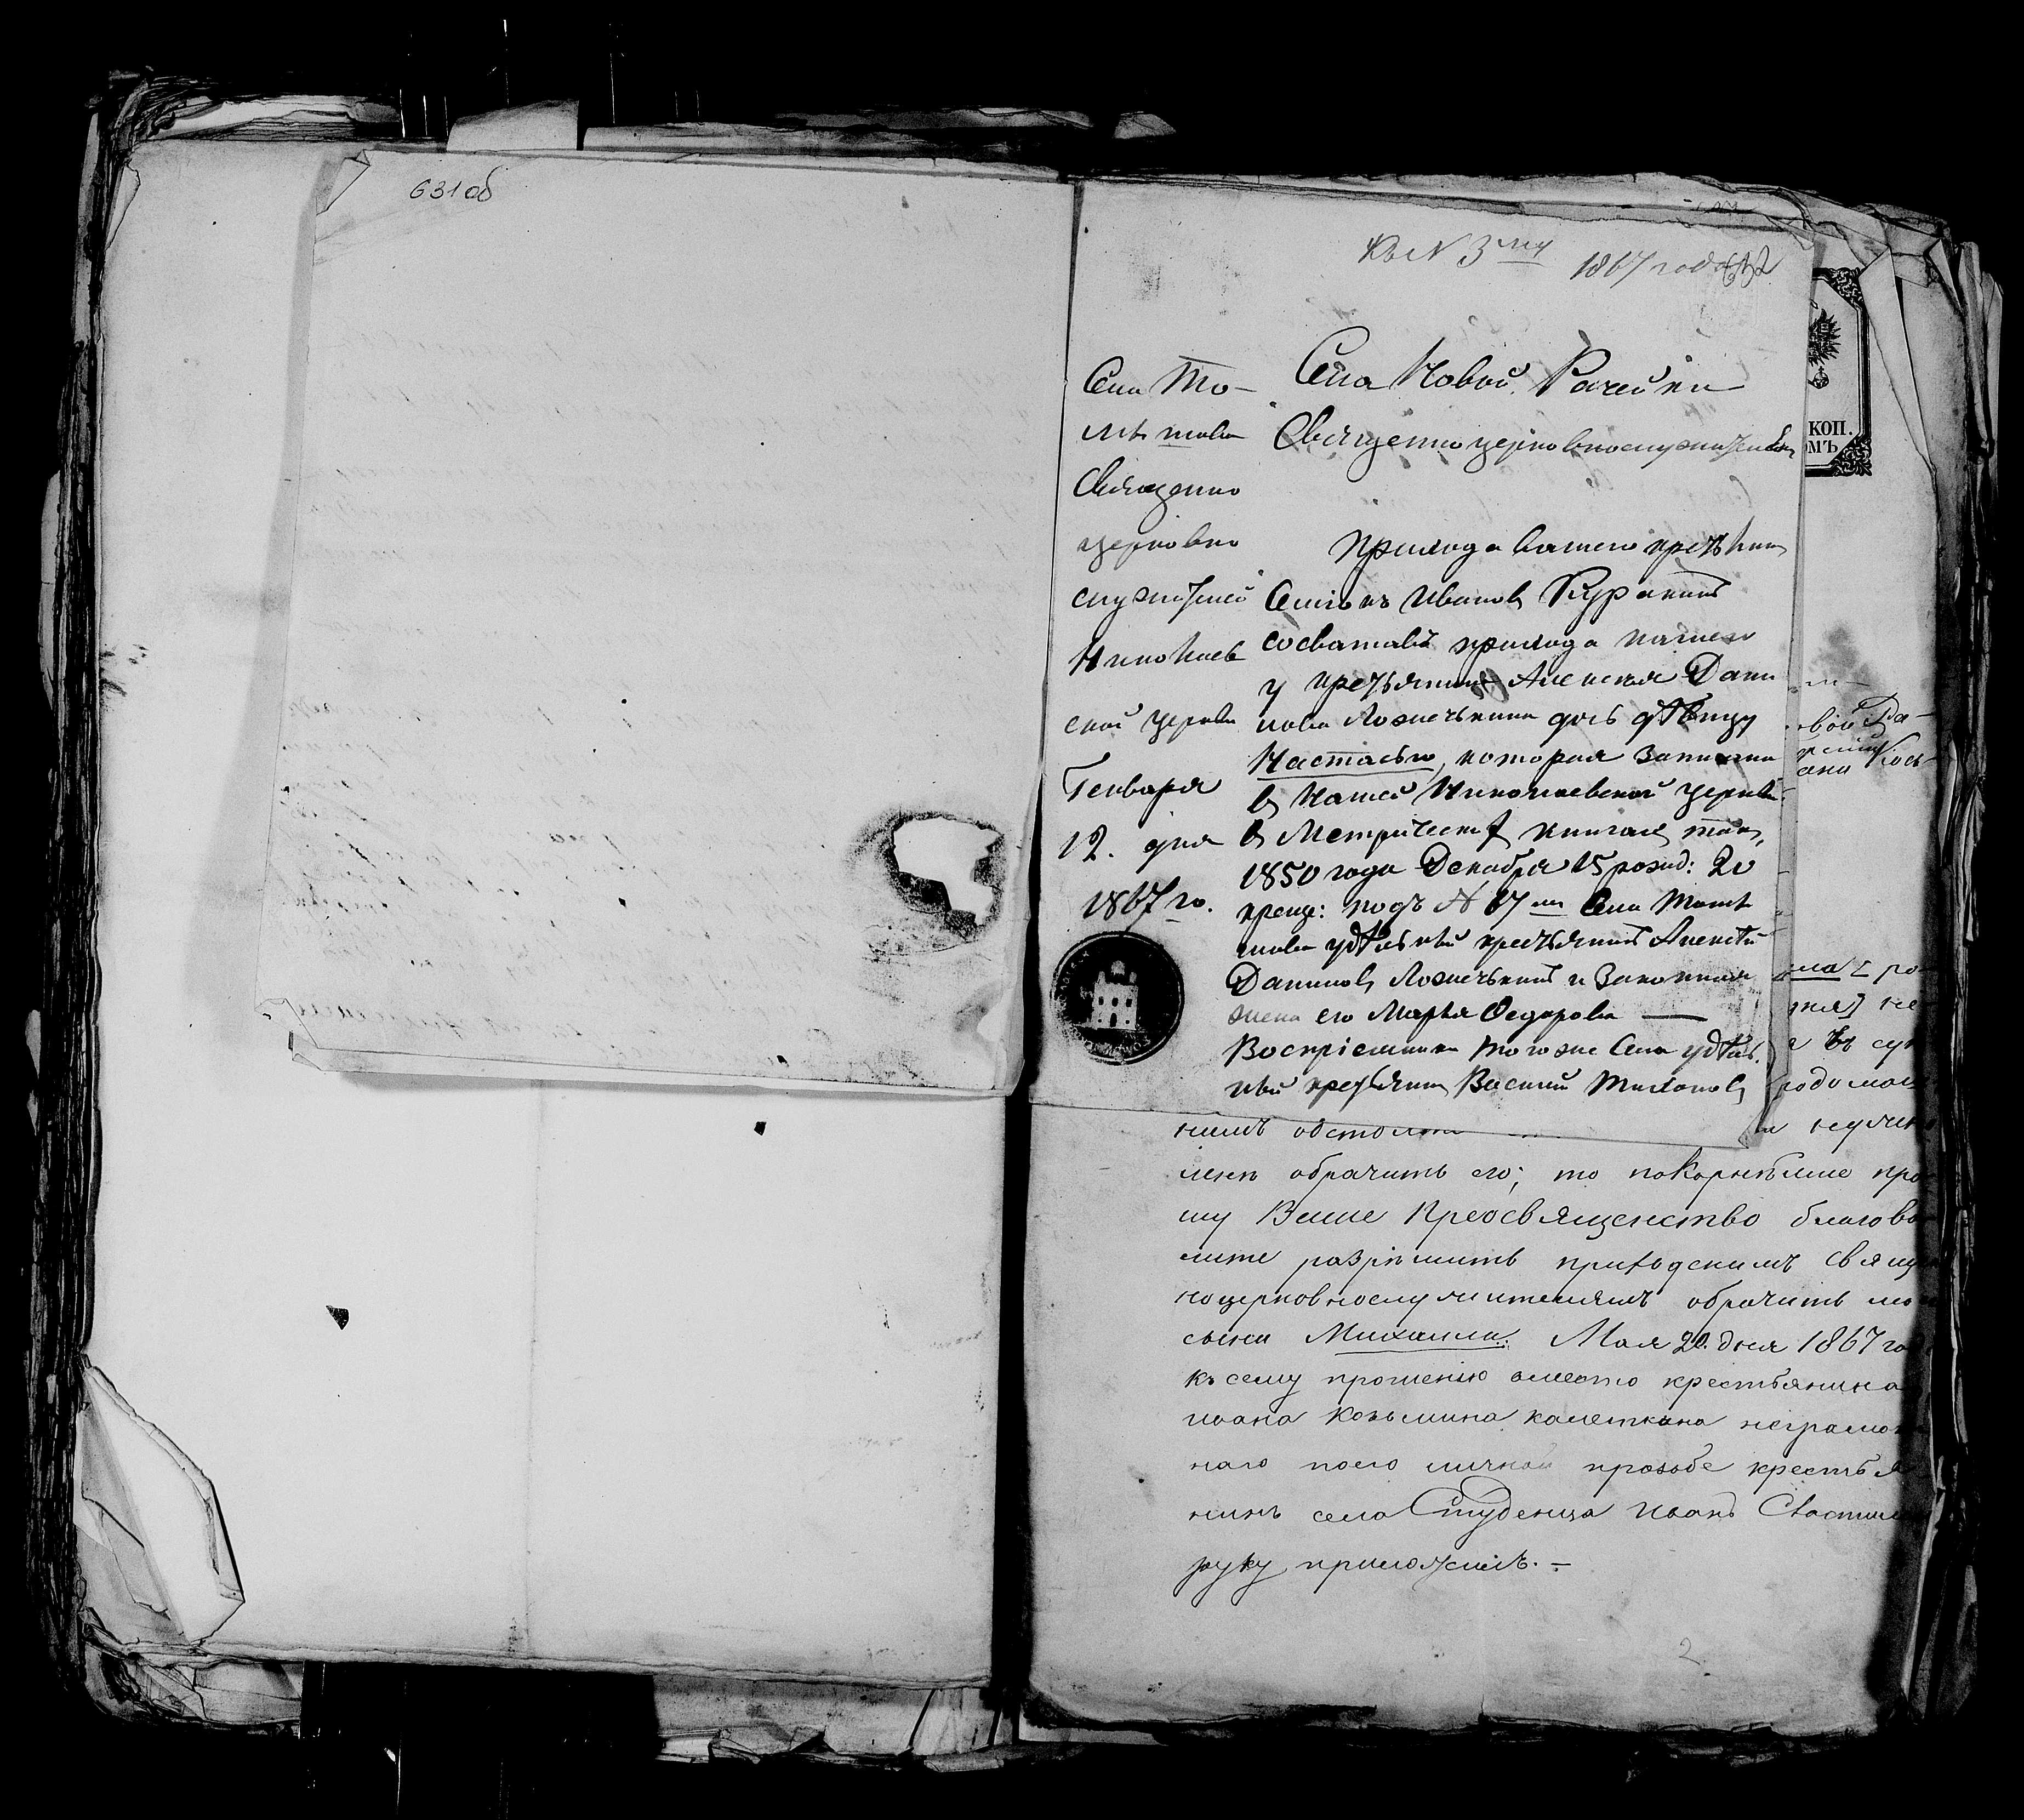 631 об
Къ N 3му 1867 года
632
Села То-
мъшева
Священно
церковно
служителей
Николаев
ской церкви
Генваря
12. дня
1867 го.
Села Новой Рачейки
Священноцерковнослужителям
Прихода вашего кресть
Семенъ Иванов Куракинъ
сосваталъ прихода нашего
у крестьянина Алексея Дани
лова Ложечкина дочь дѣвицу
Настасью, которая записана
в Нашей Николаевской церкви
в Метрических книгах так,
1850 года Декабря 15 рожд: 20
креще: подъ № 67 м Села Томы
шева удѣльный крестьянинъ Алексѣй
Данилов Ложечкинъ и Законная
жена его Марья Федорова —
Воспріемники тогоже Села удѣль
ный крестьянин Василий Тихонов
КОП.
ОМЪ
вой Ра-
нимъ обстоят
обрачить его; то покорнѣише про
шу Ваше Преосвященство благово
лите разрѣшить приходскимъ Свяще
ноцерковнослужителямъ обрачить мо
сына Михаила. Мая 20. дня 1867 го
къ сему прошенію вместо крестьянина
ивана Козьмина калеткина неграмот
наго поего личной прозьбе крестья
нинъ села Студенца Иванъ
руку приложилъ. -
2